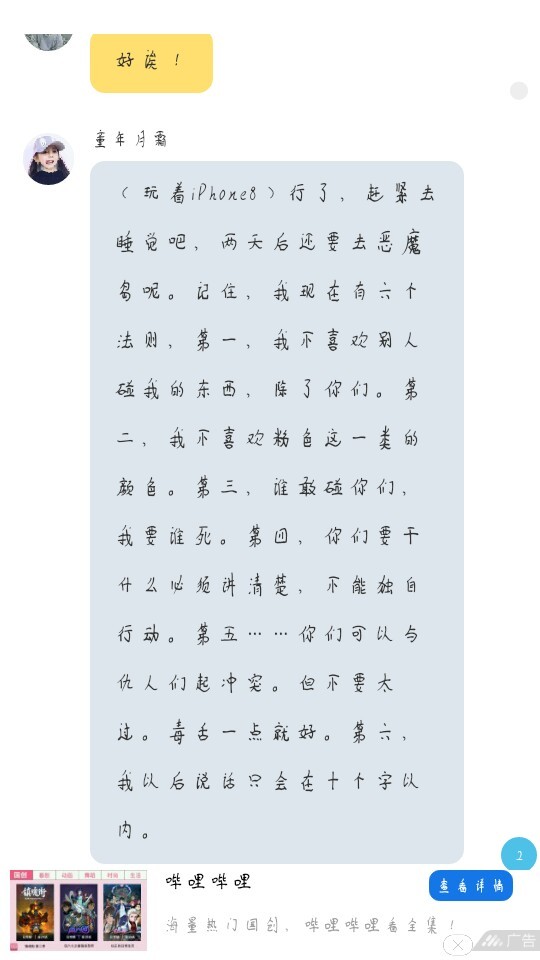 好诶！
童年月霜
（玩着iPhone8）行了，赶紧去
睡觉吧，两天后还要去恶魔
岛呢。记住，我现在有六个
法则，第一，我不喜欢别人
碰我的东西，除了你们。第
二，我不喜欢粉色这一类的
颜色。第三，谁敢碰你们，
我要谁死。第四，你们要干
什么必须讲清楚，不能独自
行动。第五……你们可以与
仇人们起冲突。但不要太
过。毒舌一点就好。第六，
我以后说话只会在十个字以
内。
2
国创 番剧 动画 舞蹈 时尚 生活
镇魂街
哔哩哔哩
查看详情
海量热门国创，哔哩哔哩看全集！
广告